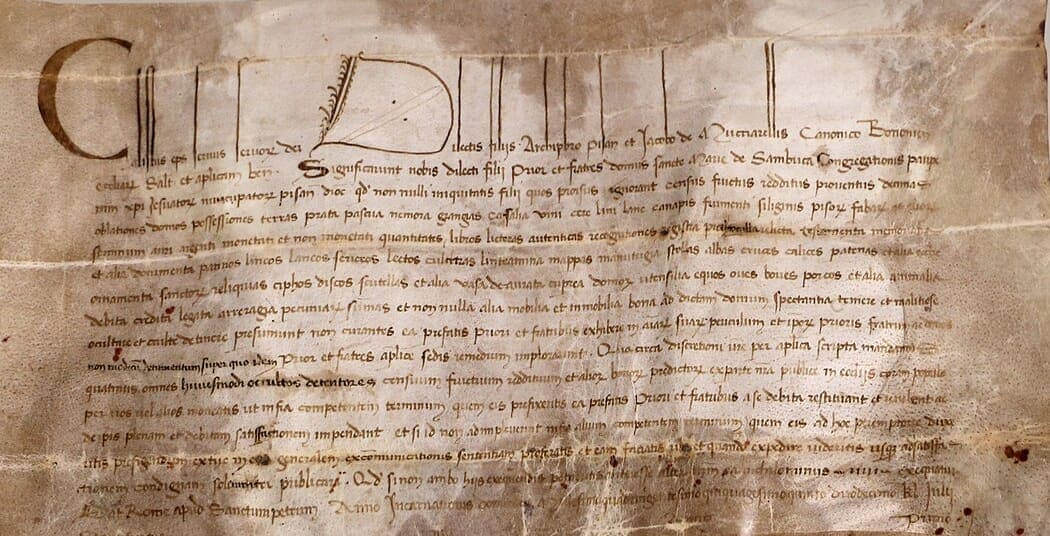 C alistus eps servus servor dei Dilectis filijs Archipbro Pisan et Jacobo de Mucciarellis Canonico Bononien
eccliar Salt et aplicam ben Significarunt nobis dilecti filij Prior et fratres domus sancte Marie de Sambuca Congregationis paupe
rum xpi Jesuator nuncupator pisan dioc qd non nulli iniquitatis filij quos prorsus ignorant census fructus redditus proventus decimas
oblationes domos possessiones terras prata pascua nemora grangias casalia vini cere lini lane canapis frumenti siliginis pisor fabar et alior
seminum auri argenti monetati et non monetati quantitates libros licteras autenticas recognitiones
et alia documenta pannos lineos laneos sericeos lectos culcitras linteamina mappas manutergia stolas albas cruces calices patenas et alia ecclie
ornamenta sanctor reliquias ciphos discos scutellas et alia vasa de aurata cuprea domor utensilia equos oves boves porcos et alia animalia
debita credita legata arreragia pecuniar sumas et non nulla alia mobilia et inmobilia bona ad dictam domum spectantia temere et malitiose
occultare et occulte detinere presumunt non curantes ea prefatis Priori et fratribus exhibere in aiar suar periculum et ipor prioris fratrum ac domus
non modicum detrimentum super quo idem Prior et fratres aplice sedis remedium implorarunt Quo circa discretioni vre per aplica scripta mandamus
quatinus omnes huiusmodi occultos detentores censuum fructuum reddituum et alior bonor predictor ex parte nra publice in eccliis coram populo
per vos vel alios moneatis ut infra competentem terminum quem eis prefixeritis ea prefatis Priori et fratribus a se debita restituant et revelent ac
de ipis plenam et debitam satisfactionem impendant et si id non adimpleverint infra alium competentem terminum quem eis ad hoc peremptorie dux
eritis prefigendum extunc in eos generalem excomunicationis sententiam proferatis et eam faciatis ubi et quando expedire videritis usqz ad satisfa
ctionem condignam solemniter publicari Qd si non ambo hijs exequendis potueritis interesse alter exequatur
Dat Rome apud Sanctumpetrum Anno Incarnationis quadringentesimoquinquagesimoquinto duodecimo kl Julij